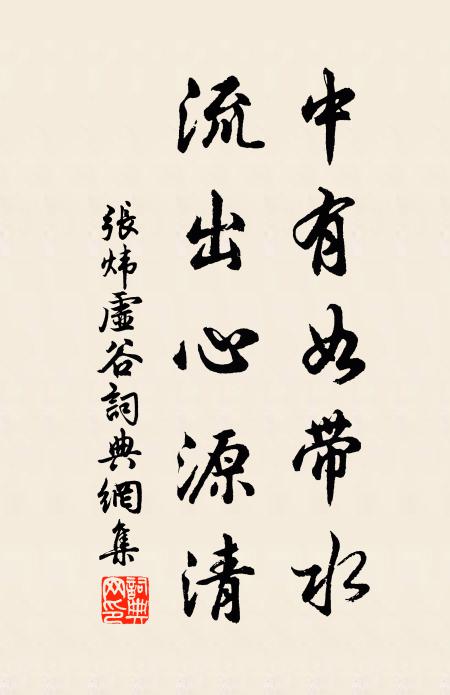 中有如带水
流出心源清
張煒虛谷詞典網集
詞典網印